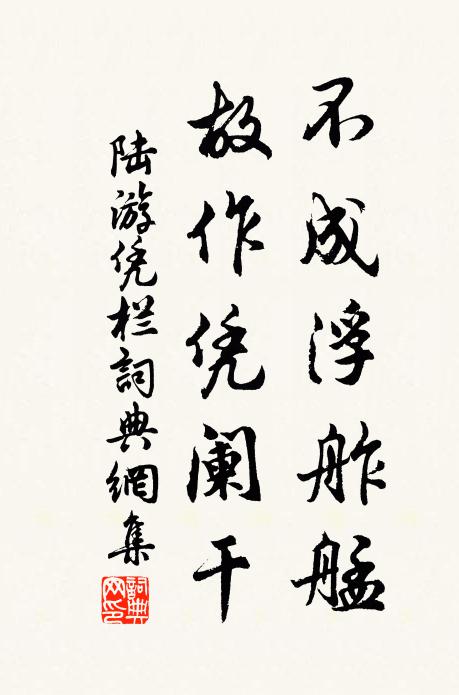 不成浮舴艋
故作凭阑干
陆游凭栏詞典網集
詞典网印